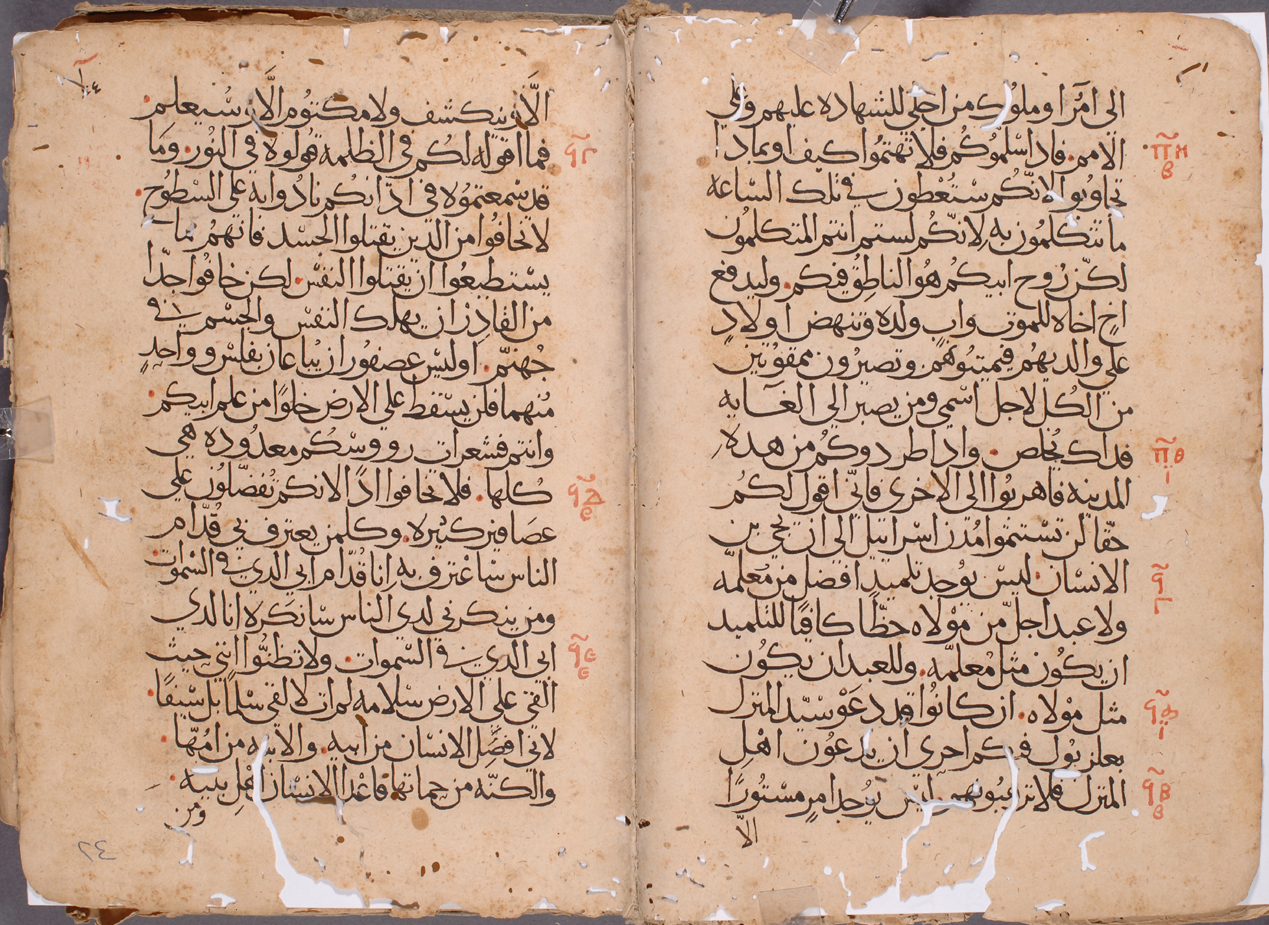 الى امرآ او ملوك من اجلى للشهاده عليهم وعلى
الامم. فاد اسلموكم فلا تهتموا كيف او بماد ا
تجاوبوا لانكم ستعطون فى تلك الساعه
ما تتكلمون به لانكم لستم انتم المتكلمون
لكن روح ابيكم هو الناطق فيكم. وليدفع
اخ اخاه للموت واب ولده وتنهض اولاد
على والديهم فيميتوهم وتصيرون ممقوتين
من الكل لاجل اسمي ومن يصبر الى الغايه
فداك يخلص. وادا طردوكم من هده
المدينه فاهربوا الى الاخرى فاني اقول لكم
حقا لن تستتموا مدن اسراييل الى ان يجي بن
الانسان. ليس يوجد تلميد افضل من معلمه
ولا عبد اجل من مولاه حظا كافيا للتلميد
ان يكون مثل معلمه. وللعبد ان يكون
مثل مولاه. ان كانوا قد دعو سيد المنزل
بعلزبول فكم احرى ان يدعون اهل
المنزل فلا ترهبونهم. ليس يوجد امر مستورا
الا
الا ان ينكشف ولا مكتوم الا ان سيعلم.
فما اقوله لكم في الظلمه قولوه في النور. وما
قد سمعتموه في ادانكم نادوا به على السطوح.
لا تخافوا من الدين يقتلوا الجسد فانهم ما
يستطيعوا ان يقتلوا النفس. لكن خافوا جدا
من القادر ان يهلك النفس والجسم في
جهنم. اوليس عصفوران يباعان بفلس وواحد
منهما فلن يسقط على الارض خلوا من علم ابيكم.
وانتم فشعرات رووسكم معدوده هي
كلها. فلا تخافوا ادا لانكم تفضلون على
عصافير كثيره. وكلمن يعترف بي قدام
الناس ساعترف به انا قدام ابي الدي في السموات
ومن ينكرني لدى الناس سانكره انا لدي
ابي الدي في السموات. ولا تظنوا انني جيت
القي على الارض سلامه لم ات لالقي سلما بل سيفا.
لاني افصل الانسان من ابيه. والابنه من امها.
والكنه من حماتها فاعدا الانسان اهل بيته.
ومن
٢٤